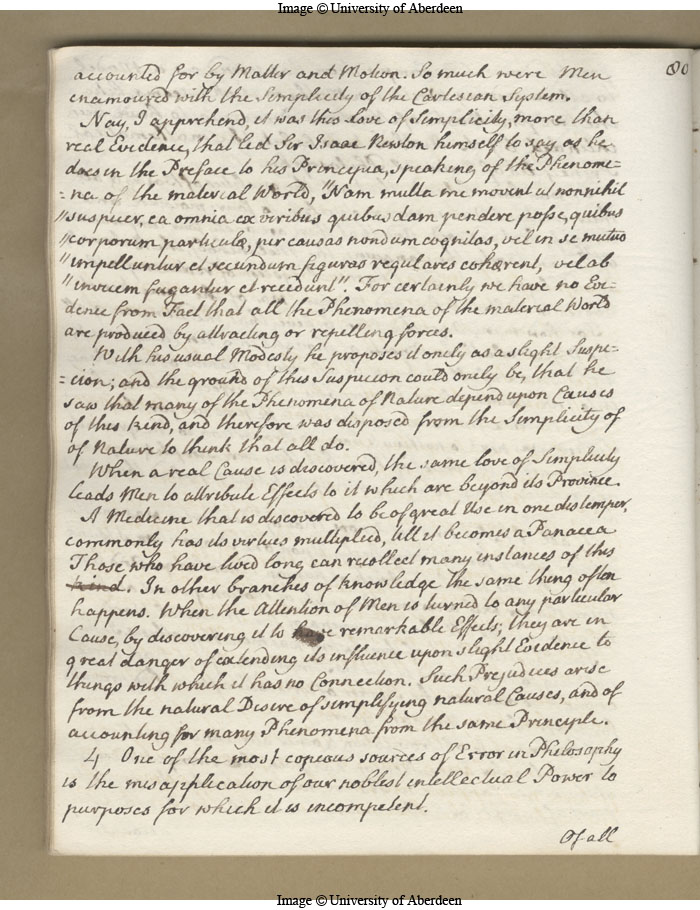 Image © University of Aberdeen
80
accounted for by Matter and Motion. So much were Men
enamoured with the Simplicity of the Cartesian System.
Nay, I apprehend, it was this love of Simplicity, more than
real Evidence, that led Sir Isaac Newton himself to say, as he
does in the Preface to his Principia, speaking of the Phenome-
=na of the material World, "Nam multa me movent ut nonnihil
"suspicer, ea omnia ex viribus quibusdam pendere posse, quibus
"corporum particulæ, per causas nondum cognitas, vel in se mutuo
"impelluntur et secundum figuras regulares cohærent, vel ab
"invicem fugantur et recedunt". For certainly we have no Evi-
dence from Fact that all the Phenomena of the material World
are produced by attracting or repelling forces.
With his usual Modesty he proposes it onely as a slight Suspi-
=cion; and the ground of this Suspicion could onely be, that he
saw that many of the Phenomena of Nature depend upon Causes
of this kind, and therefore was disposed from the Simplicity of
of Nature to think that all do.
When a real Cause is discovered, the same love of Simplicity
leads Men to attribute Effects to it which are beyond its Province.
A Medicine that is discovered to be of great Use in one distemper,
commonly has its virtues multiplied, till it becomes a Panacea
Those who have lived long can recollect many instances of this
kind. In other branches of knowledge the same thing often
happens. When the Attention of Men is turned to any particular
Cause, by discovering it to have remarkable Effects; they are in
great danger of extending its influence upon slight Evidence to
things with which it has no Connection. Such Prejudices arise
from the natural Desire of simplifying natural Causes, and of
accounting for many Phenomena from the same Principle.
4 One of the most copious sources of Error in Philosophy
is the misapplication of our noblest intellectual Power to
purposes for which it is incompetent.
Of all
Image © University of Aberdeen